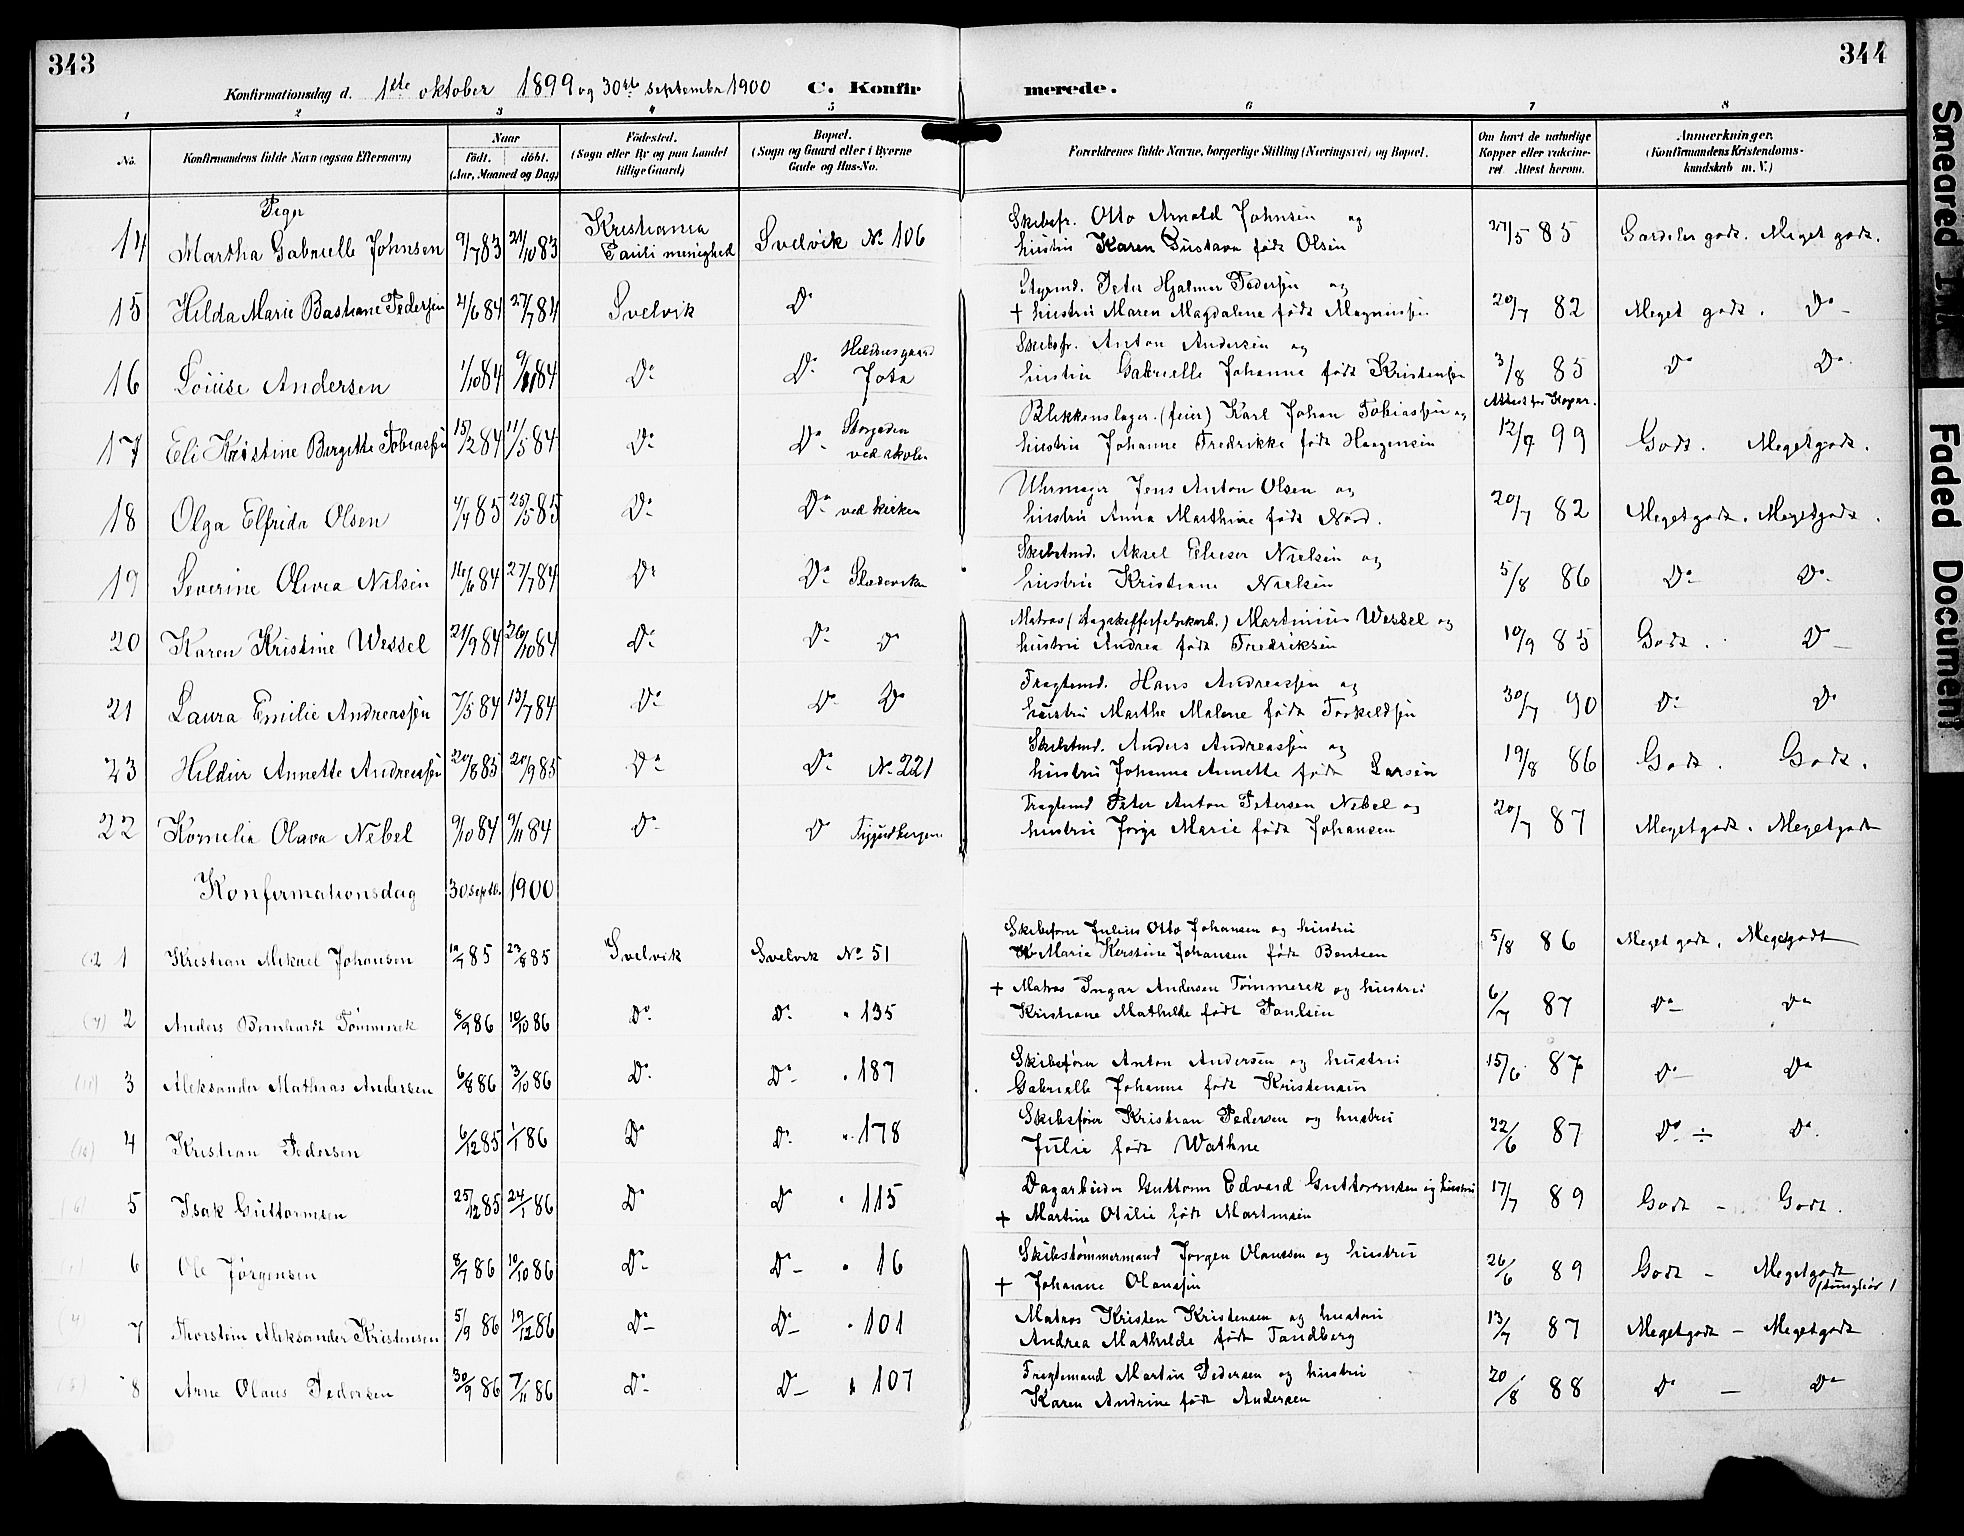 343
344
Konfirmationsdag d. 1ste oktober 1899 og 30te septembr 1900 C. Konfirmerede.
1 2 3 4 5 6 7 8
No. Konfirmandens fulde Navn (ogsaa Efternavn) Naar født. døbt. (Aar, Maaned og Dag) Fødested. (Sogn eller By og paa Landet tillige Gaard) Bopæl. (Sogn og Gaard eller i Byerne Gade og Hus-No. Forældrenes fulde Navne, borgerlige Stilling (Næringsvei) og Bopæl. Om havt de naturlige Kopper eller vakcineret. Attest herom. Anmærkninger. (Konfirmandens Kristendomskundskab m. V.)
Piger
14 Martha Gabrielle Johnsen 9/7 83 21/10 83 Kristiania Pauli menighed Svelvik No 106 Skibsfr. Otto Arnold Johnsen og hustru Karen Gustava født Olsen 27/5 85 Særdeles godt. Meget godt.
15 Hilda Marie Bastiane Pedersen 4/6 84 27/7 84 Svelvik Do Styrmd. Peter Hjalmar Pedersen og + hustru Maren Magdalene født Magnussen 20/7 82 Meget godt. Do
16 Louise Andersen 1/10 84 9/11 84 Do Do Jota Skibsfr. Anton Andersen og hustru Gabrielle Johanne født Kristensen 3/8 85 Do Do
17 Eli Kristine Bergitte Tobiassen 15/2 84 11/5 84 Do Do Storgaden ved skolen Blikkenslager (feier) Karl Johan Tobiassen og hustru Johanne Fredrikke født Haagensen Attest for Kopper. 12/9 99 Godt. Meget godt.
18 Olga Elfrida Olsen 4/4 85 25/5 85 Do Do ved kirken Uhrmager Jens Anton Olsen og hustru Anna Marthine født Nord. 20/7 82 Meget godt. Meget godt.
19 Severine Olivia Nilsen 16/6 84 27/7 84 Do Do Skibstmd. Aksel Elieser Nielsen og hustru Kristiane Nielsen 5/8 86 Do Do
20 Karen Kristine Wessel 21/9 84 26/10 84 Do Do Do Matros Martinius Wessel og hustru Andrea født Fredriksen 10/9 85 Godt. Do
21 Laura Emilie Andreassen 7/5 84 13/7 84 Do Do Do Fragtemd. Hans Andreassen og hustru Marthe Malene født Torkildsen 30/7 90 Do Do
23 Hildur Annette Andreassen 20/8 85 20/9 85 Do Do No 221 Skibstmd. Anders Andreassen og hustru Johanne Annette født Larsen 19/8 86 Godt. Godt.
22 Kornelia Olava Nebel 9/10 84 9/11 84 Do Do Fragtemd Peter Anton Petersen Nebel og hustru Marie født Johansen 20/7 87 Meget godt. Meget godt
Konfirmationsdag 30 septb. 1900
1 Kristian Mikael Johansen 85 23/8 85 Svelvik Svelvik No 51 Skibsfører Julius Otto Johansen og hustru Marie Kirstine Johansen født Bentsen 5/8 86 Meget godt. Meget godt
2 Anders Bernhardt Tømmerek 8/9 86 10/10 86 Do Do " 135 + Matros Ingar Andersen Tømmerek og hustru Kristiane Mathilde født Paulsen 6/7 87 Do Do
3 Aleksander Mathias Andersen 6/8 86 3/10 86 Do Do " 187 Skibsfører Anton Andersen og hustru Gabrielle Johanne født Kristensen 15/6 87 Do Do
4 Kristian Pedersen 6/12 85 1/1 86 Do Do " 178 Skibsfører Kristian Pedersen og hustru Julie født Wathne 22/6 87 Do ÷ Do
5 Isak Guttormsen 25/12 85 24/1 86 Do Do " 115 Dagarbeider Guttorm Edvard Guttormsen og hustru + Martine Otilie født Martinsen 17/7 89 Godt - Godt.
6 Ole Jørgensen 8/7 86 10/10 86 Do Do " 16 Skibstømmermand Jørgen Olaussen og hustru + Johanne Olaussen 26/6 89 Godt - Meget godt (tunghør)
7 Thorstein Aleksander Kristensen 5/9 86 19/12 86 Do Do " 101 Matros Kristen Kristensen og hustru Andrea Mathilde født Tandberg 13/7 87 Meget godt - Meget godt
8 Arne Olaus Pedersen 30/9 86 7/11 86 Do Do " 107 Fragtemand Martin Pedersen og hustru Karen Andrine født Andersen 20/8 88 Do - Do
Smeared Ink
Faded Document